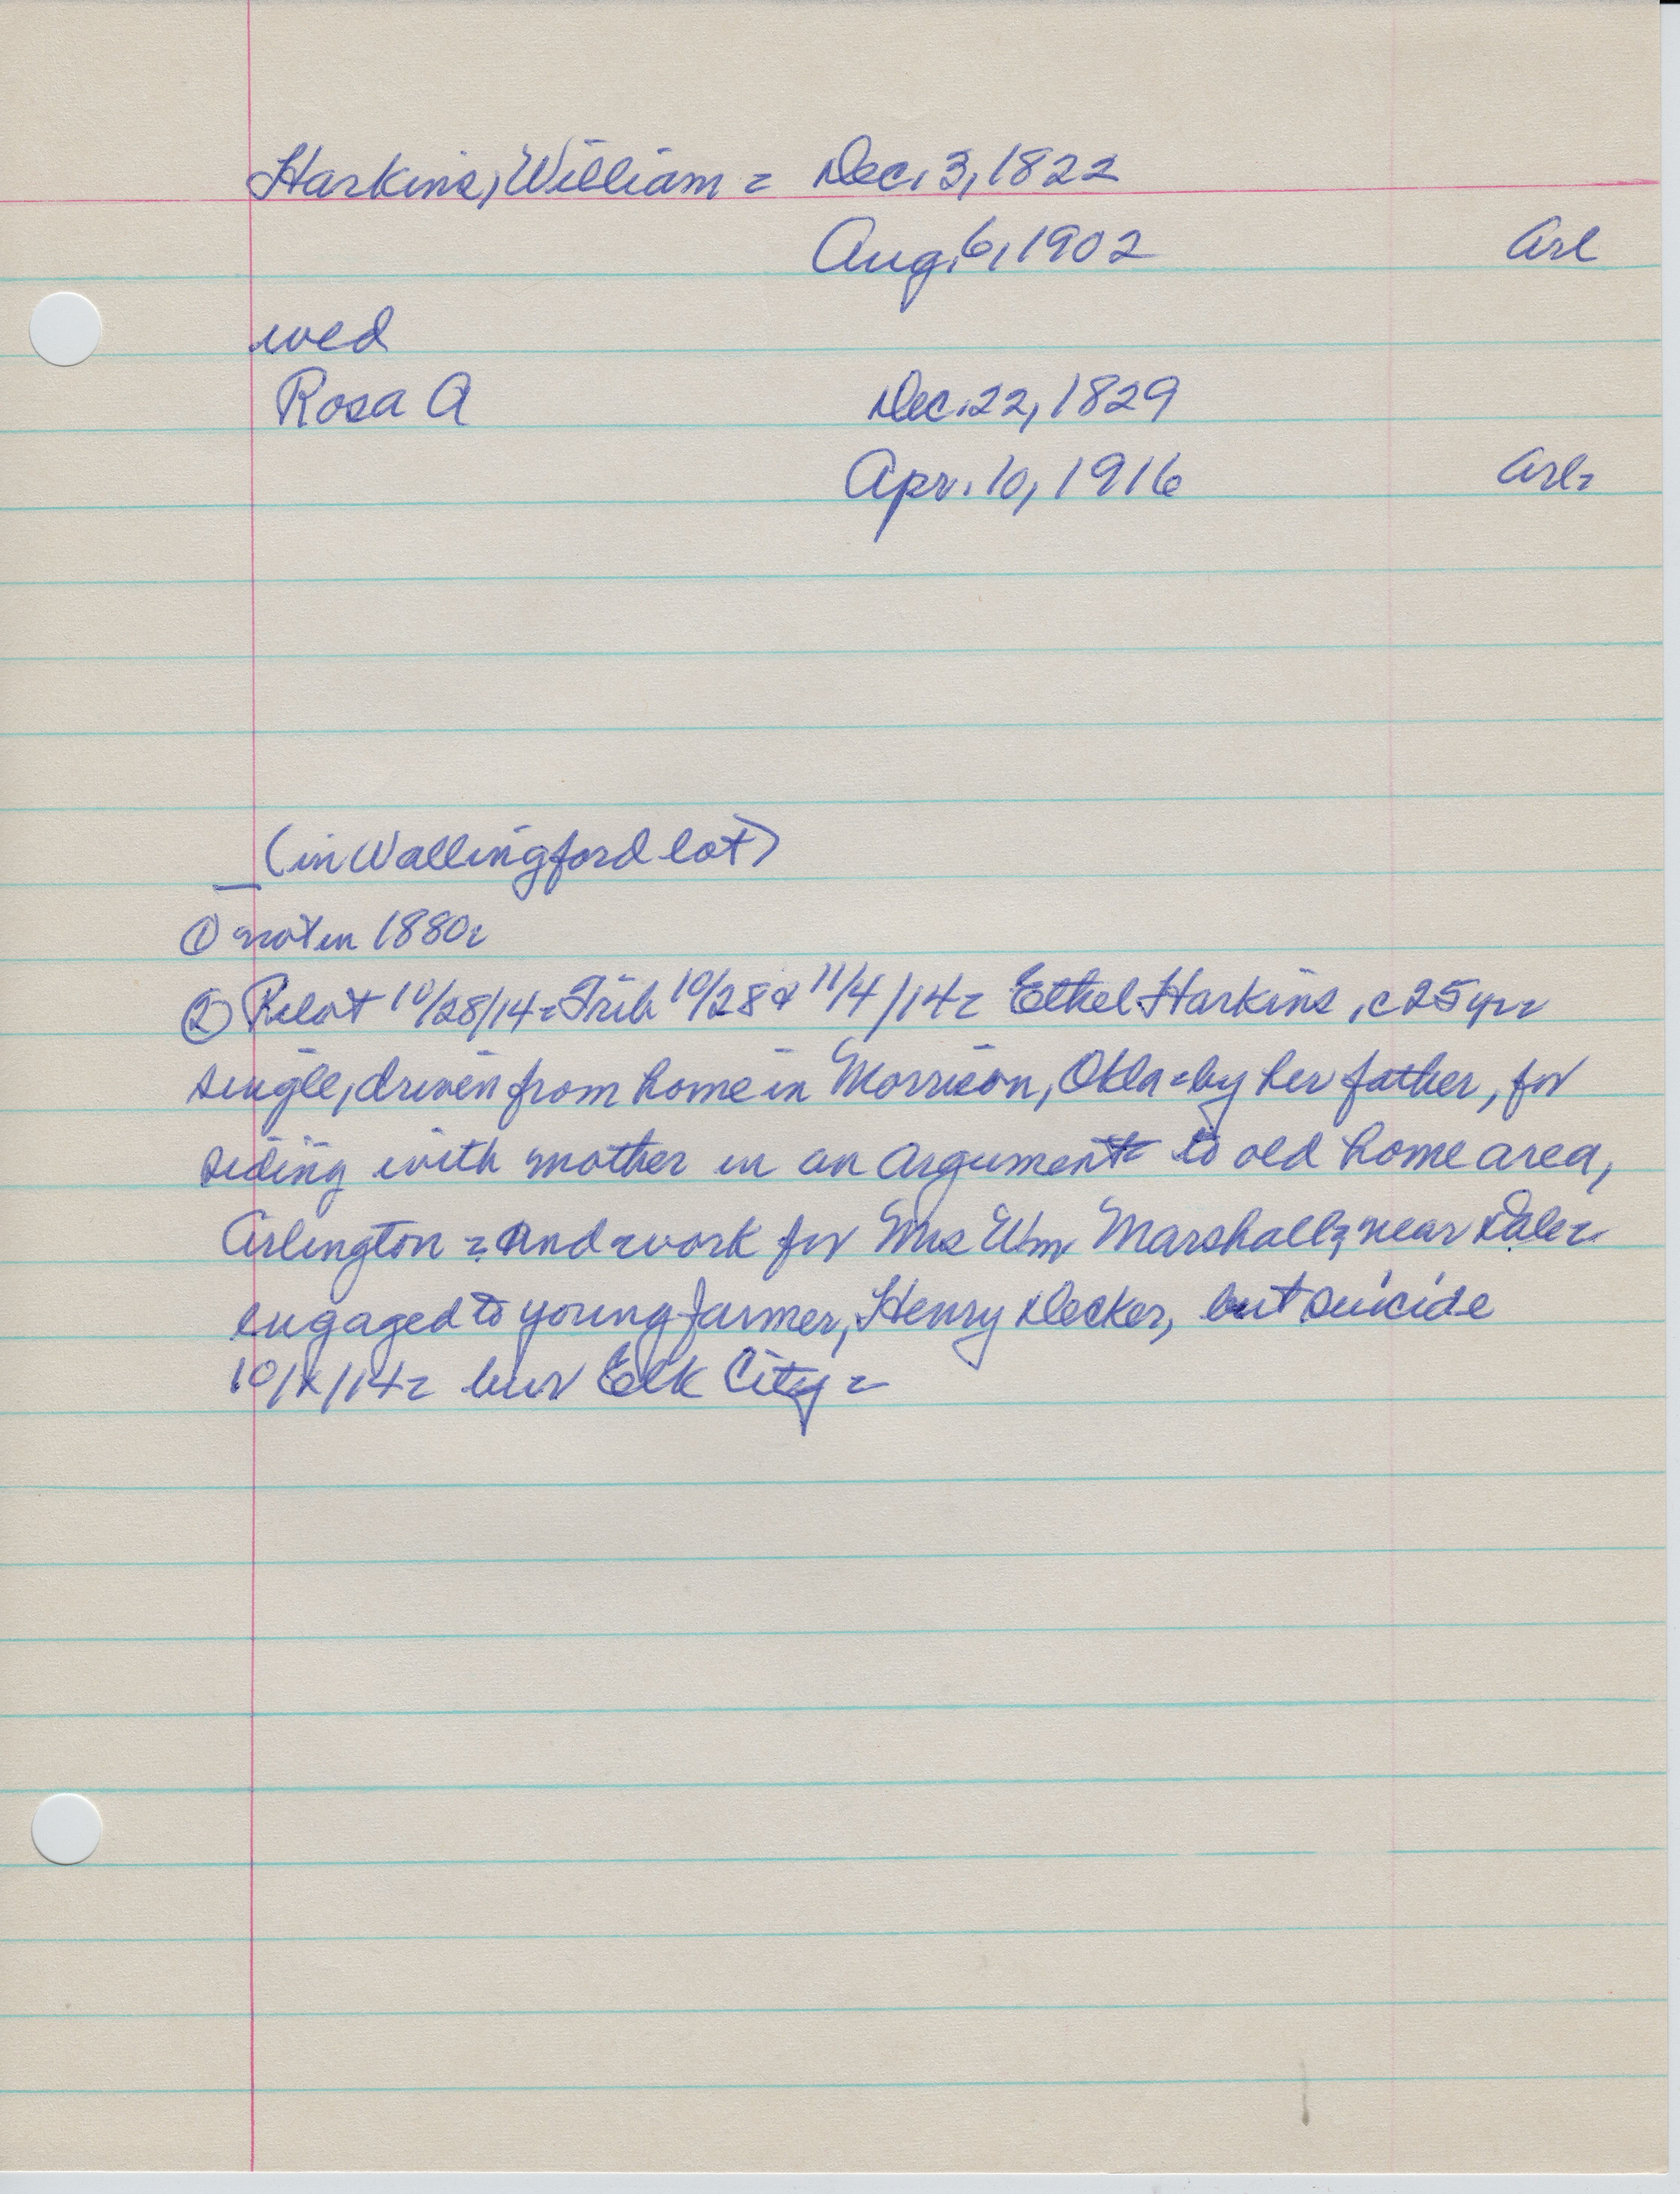 Harkins, William = Dec. 3, 1822
Aug. 6, 1902 Arl
wed
Rosa A Dec. 22, 1829
Apr. 10, 1916 Arl=
(in Wallingford lot)
① not in 1880=
② Pilot 10/28/14= Trib 10/28 & 11/4/14= Ethel Harkins, c 25 yr=
single, driven from home in Morrison, Okla= by her father, for
siding with mother in an argument= to old home area,
Arlington = and work for Mrs Wm Marshall, near Dale=
engaged to young farmer, Henry Decker, but suicide
10/x/14= bur Elk City=